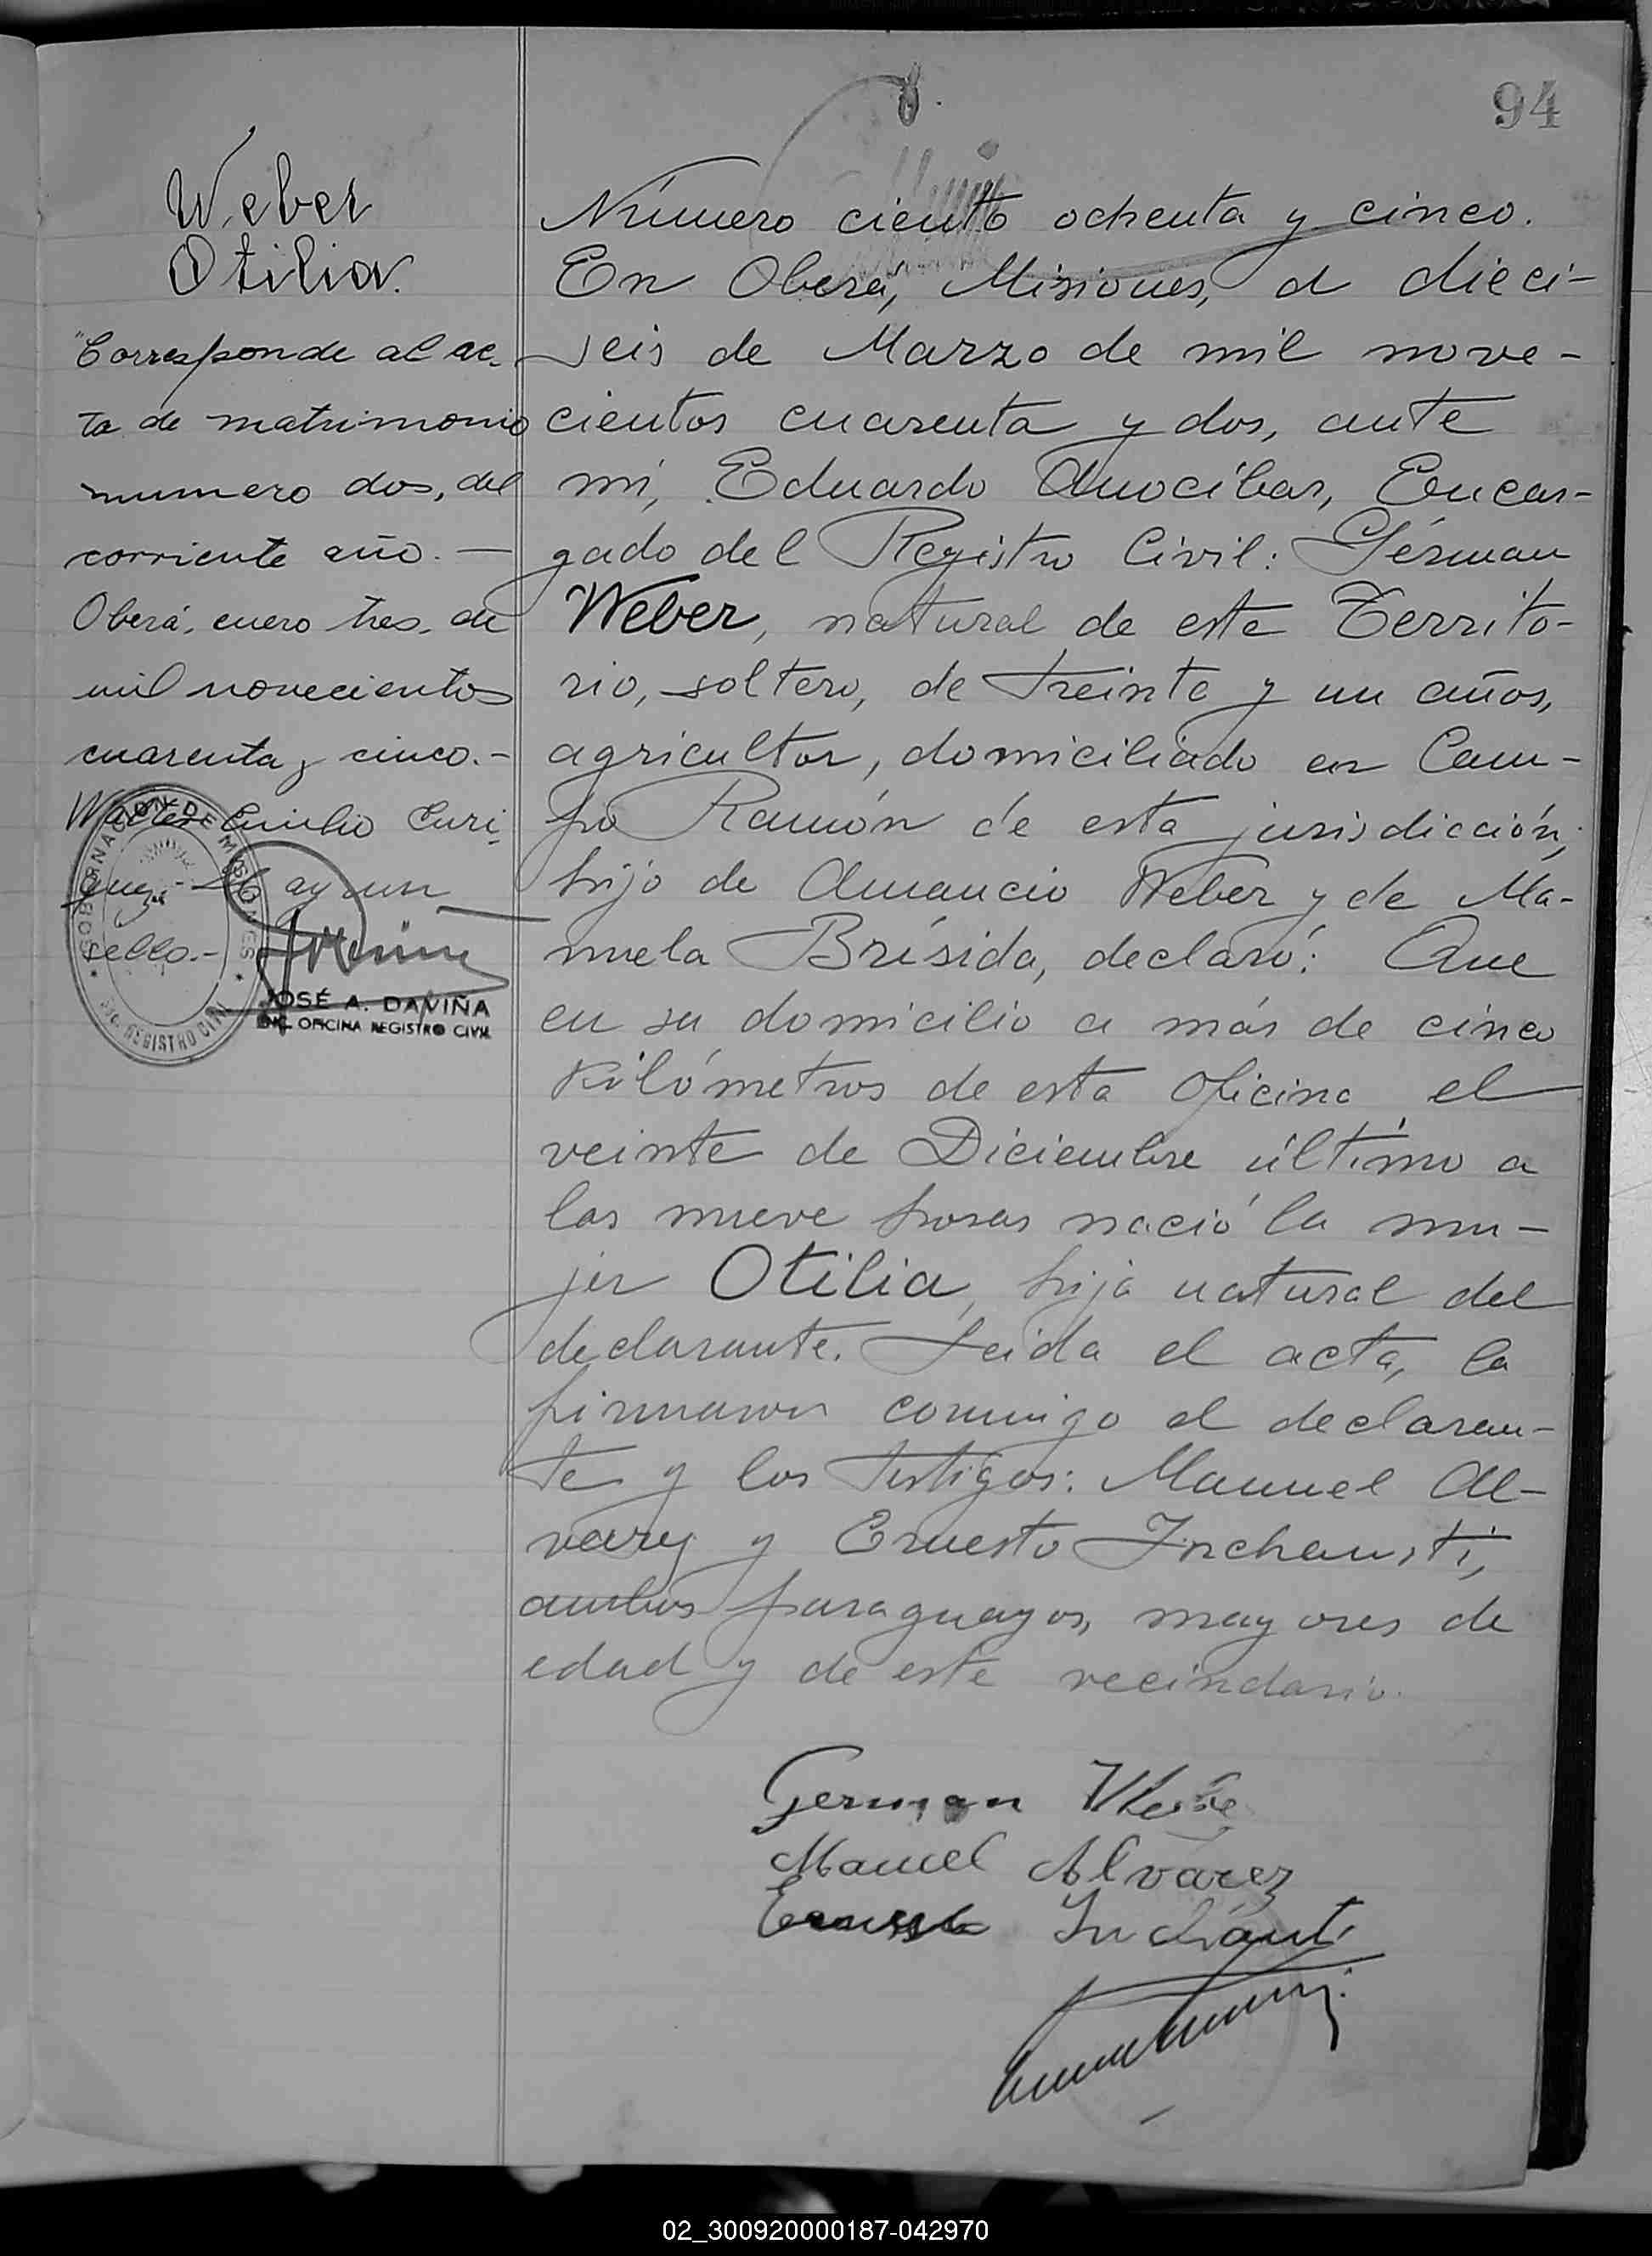 94
Weber
Otilia.
"Corresponde al ac-
ta de matrimonio
numero dos, del
corriente año. —
Oberá, enero tres, de
mil novecientos
cuarenta y cinco.-
Walter Emilio Enri-
quez.- Hay un
sello.-
GOBERNACION DE MISIONES
REGISTRO CIVIL
JOSÉ A. DAVIÑA
ENC. OFICINA REGISTRO CIVIL
Número ciento ochenta y cinco.
En Oberá, Misiones, a dieci-
seis de Marzo de mil nove-
cientos cuarenta y dos, ante
mi, Eduardo Anocíbar, Encar-
gado del Registro Civil: Gérman
Weber, natural de este Territo-
rio, soltero, de treinta y un años,
agricultor, domiciliado en Cam-
po Ramón de esta jurisdicción,
hijo de Amancio Weber y de Ma-
nuela Brísida, declaró: Que
en su domicilio a más de cinco
Kilómetros de esta oficina, el
veinte de Diciembre último a
las nueve horas nació la mu-
jer Otilia, hija natural del
declarante. Leida el acta, la
firmaron conmigo el declaran-
te y los testigos: Manuel Al-
varez y Ernesto Inchausti,
ambos paraguayos, mayores de
edad y de este vecindario.
German
Manuel Alvarez
Ernesto
02_300920000187-042970